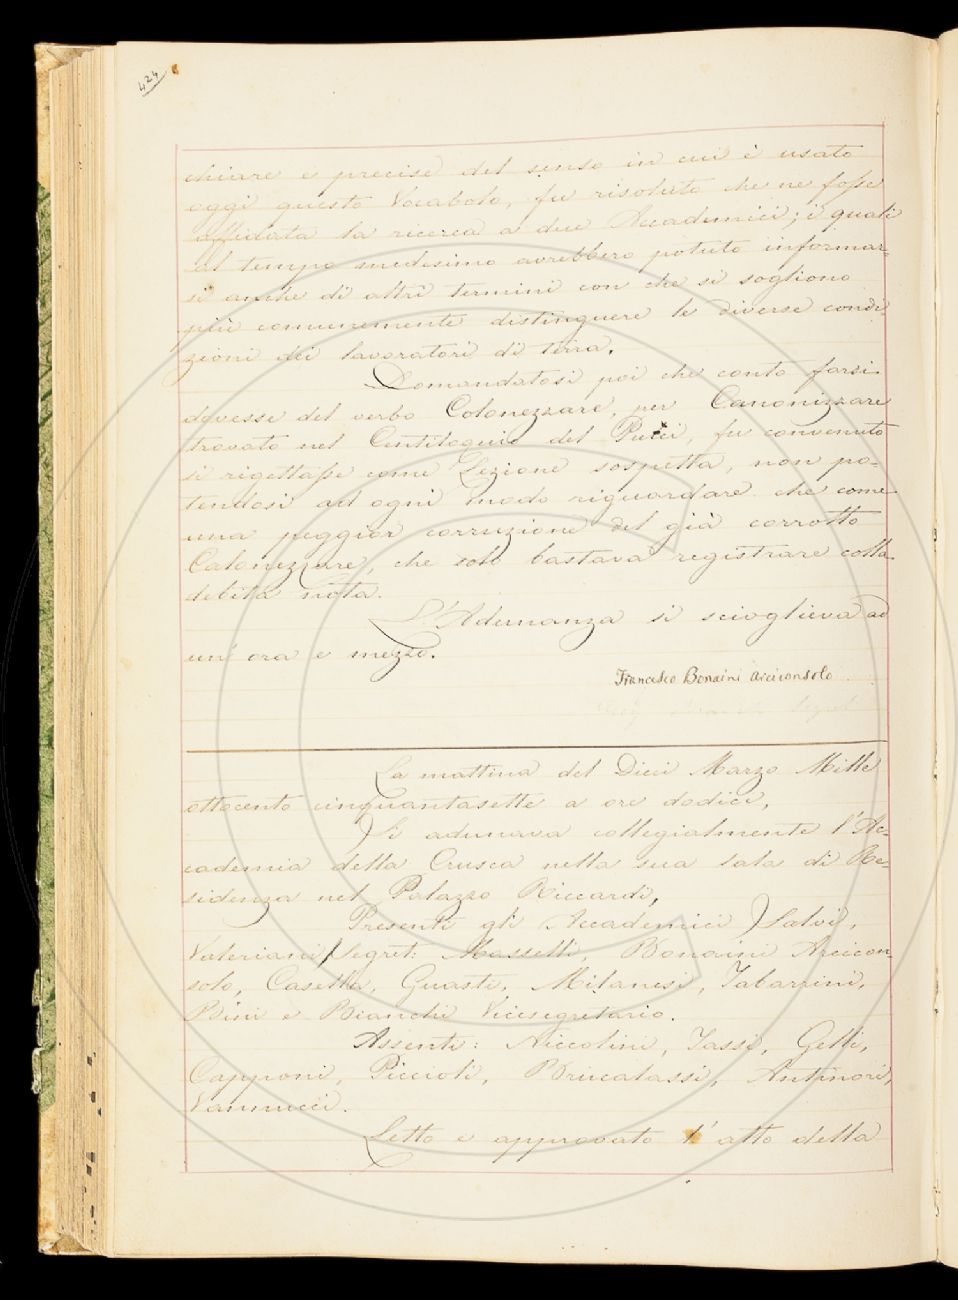 424
chiare e precise del senso in cui è usato
oggi questo Vocabolo, fu risoluto che ne fosse
affidata la ricerca a due Accademici; i quali
al tempo medesimo avrebbero potuto informar=
si anche di altri termini con che si sogliono
più comunemente distinguere le diverse condi
zioni dei lavoratori di terra.
Domandatosi poi che conto farsi
dovesse del verbo Colonezzare, per Canonizzare
trovato nel Centiloquio del Pucci, fu convenuto
si rigettasse come Lezione sospetta, non po=
tendosi ad ogni modo riguardare che come
una peggior corruzione del già corrotto
Calonezzare, che solo bastava registrare colla
debita nota.
L'Adunanza si scioglieva ad
un' ora e mezzo.
Francesco Bonaini Arciconsolo
La mattina del Dieci Marzo Mille
ottocento cinquantasette a ore dodici,
Si adunava collegialmente l'Ac=
cademia della Crusca nella sua sala di Re=
sidenza nel Palazzo Riccardi,
Presenti gli Accademici Salvi,
Valeriani, Segret: Masselli, Bonaini Arcicon
solo, Casella, Guasti, Milanesi, Tabarrini,
Bini e Bianchi Vicesegretario.
Assenti: Niccolini, Tassi, Gelli,
Capponi, Piccioli, Brucalassi, Antinori,
Vannucci.
Letto e approvato l'atto della